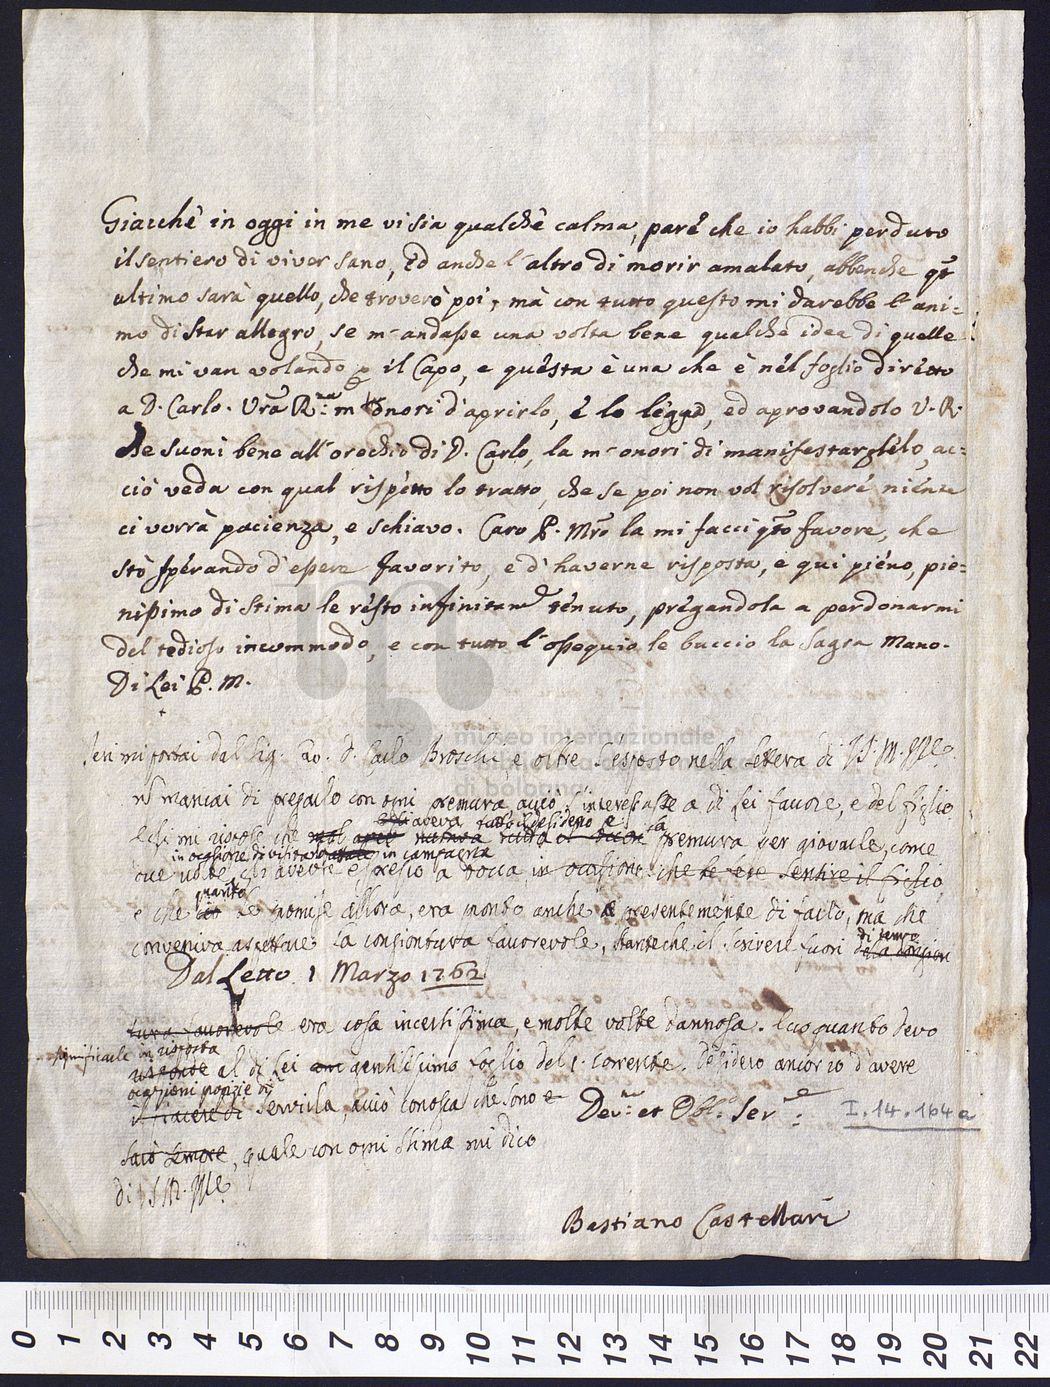 Giacchè in oggi in me vi sia qualchè calma, parè che io habbi perduto
il sentiero di viver sano, ed anche l'altro di morir amalato, abbenche qto
ultimo sarà quello, che troverò poi, mà con tutto questo mi darebbe l'ani=
mo di star allegro, se m'andasse una volta bene qualche idea di quelle
che mi van volando p il Capo, e questa è una che è nel foglio diretto
a D. Carlo. Vra Rma m'onori d'aprirlo, è lo legga, ed aprovandolo V. R.
che suoni bene all'orechio di D. Carlo, la m'onori di manifestarglielo, ac=
ciò veda con qual rispetto lo tratto, che se poi non vol risolvere niente
ci vorrà pacienza, e schiavo. Caro P. Mro la mi facci qto favore, che
stò sperando d'essere favorito, e d'haverne risposta, e qui pieno, pie=
nissimo di stima le resto infinitamte tenuto, pregandola a perdonarmi
del tedioso incommodo, e con tutto l'ossequio le buccio la sagra Mano.
Di Lei P. M.
Ieri mi portai dal Sig. D. Carlo Broschi, e oltre l'esposto nella lettera di
mancai di pregarlo con ogni premura acciò s'interessasse a di Lei favore, e del figlio
aveva tutto il desiderio e
e che mi rispose che premura per giovarle, come
in ocasione di visita in campagna
due volte gli avevo espresso a bocca, in ocasione che le fece sentire il figlio
quanto
e che le promise allora, era pronto anche presentemente di farlo, ma che
conveniva aspettare la congiontura favorevole, stante che il scrivere fuori di tempo
Dal Letto 1 Marzo 1762
tura favorevole era cosa incertissima, e molte volte dannosa. Tutto quanto devo
significarle in risposta
risponde al di Lei gentilissimo foglio del 1 corrente. Desidero ancor io d'avere
ocasioni propizie di
il piacere di servirla, acciò conosca che sono
Devmo et Oblmo Serre
I.14.164a
sarò sempre, quale con ogni stima mi dico
di
Bastiano Castellari
0 1 2 3 4 5 6 7 8 9 10 11 12 13 14 15 16 17 18 19 20 21 22
museo internazionale
di bologna